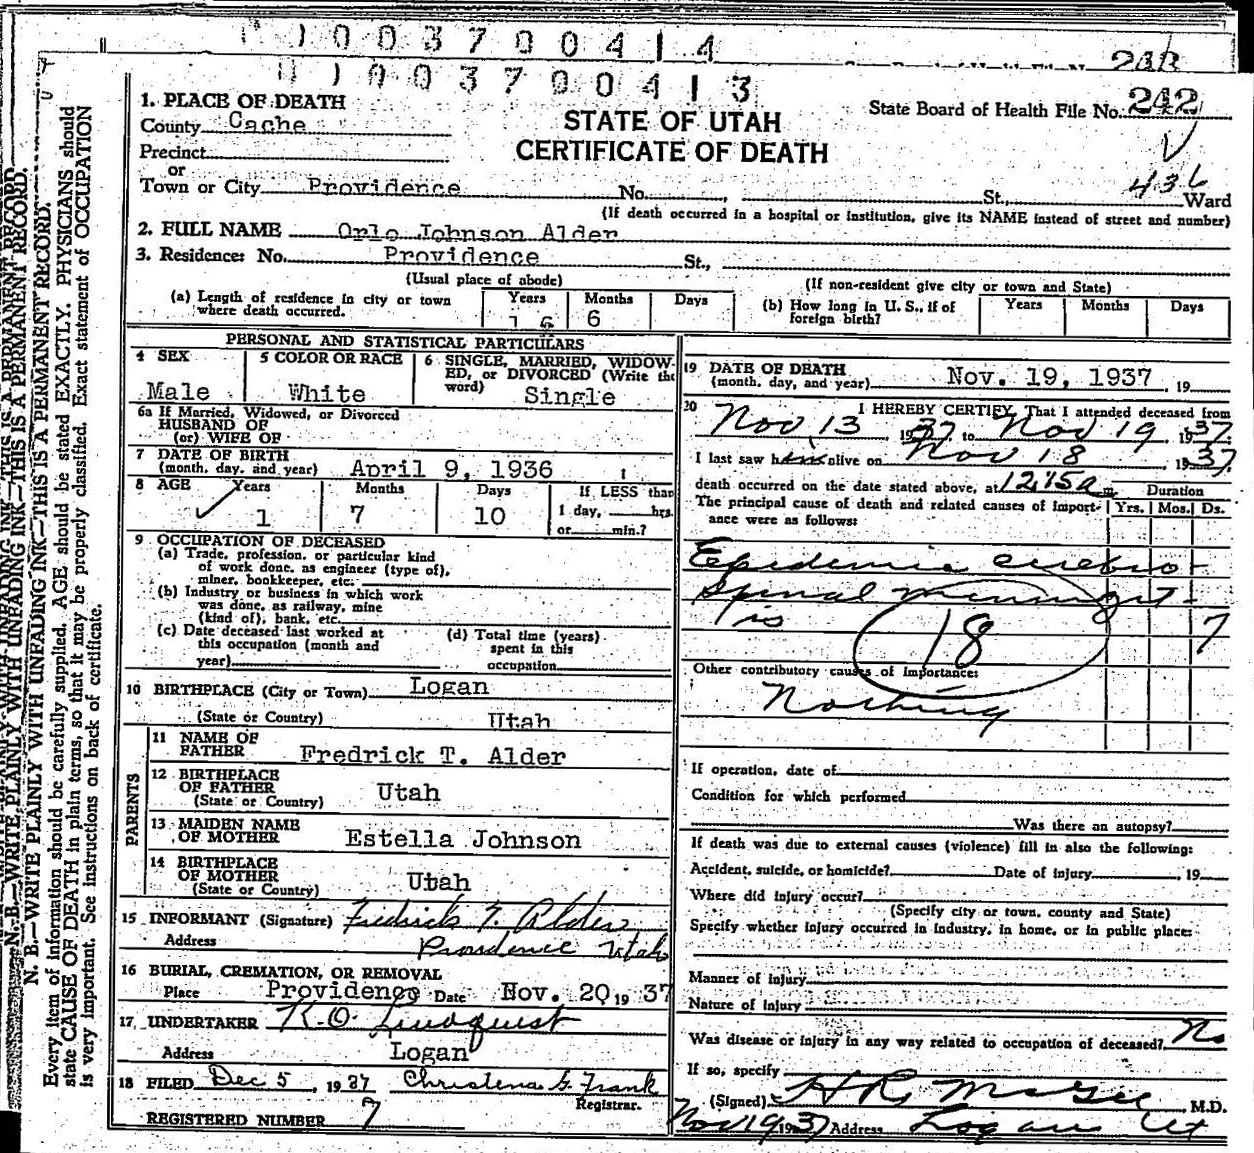 1003700414
243
1003700413
1. PLACE OF DEATH
State Board of Health File No. 242
County Cache
STATE OF UTAH
CERTIFICATE OF DEATH
Precinct
or
Town or City Providence No. , St., Ward
436
(If death occurred in a hospital or institution, give its NAME instead of street and number)
2. FULL NAME Orlo Johnson Alder
3. Residence: No. Providence St.,
(Usual place of abode) (If non-resident give city or town and State)
(a) Length of residence in city or town where death occurred. Years 1 6 Months 6 Days
(b) How long in U. S., if of foreign birth? Years Months Days
PERSONAL AND STATISTICAL PARTICULARS
4 SEX Male
5 COLOR OR RACE White
6 SINGLE, MARRIED, WIDOW-
ED, or DIVORCED (Write the
word) Single
6a If Married, Widowed, or Divorced
HUSBAND OF
(or) WIFE OF
7 DATE OF BIRTH
(month, day, and year) April 9, 1936
8 AGE Years Months Days If LESS than
1 7 10 1 day, hrs.
or min.?
9 OCCUPATION OF DECEASED
(a) Trade, profession, or particular kind
of work done, as engineer (type of),
miner, bookkeeper, etc.
(b) Industry or business in which work
was done, as railway, mine
(kind of), bank, etc.
(c) Date deceased last worked at
this occupation (month and
year)
(d) Total time (years)
spent in this
occupation
10 BIRTHPLACE (City or Town) Logan
(State or Country) Utah
PARENTS
11 NAME OF
FATHER Fredrick T. Alder
12 BIRTHPLACE
OF FATHER
(State or Country) Utah
13 MAIDEN NAME
OF MOTHER Estella Johnson
14 BIRTHPLACE
OF MOTHER
(State or Country) Utah
15 INFORMANT (Signature) Fredrick T. Alder
Address Providence Utah
16 BURIAL, CREMATION, OR REMOVAL
Place Providence Date Nov. 20 19 37
17 UNDERTAKER R. O. Lindquist
Address Logan
18 FILED Dec 5, 1937 Christena G. Frank
Registrar.
REGISTERED NUMBER 7
19 DATE OF DEATH
(month, day, and year) Nov. 19, 1937 , 19
20 I HEREBY CERTIFY, That I attended deceased from
Nov 13 1937 to Nov 19 1937.
I last saw him alive on Nov 18, 1937
death occurred on the date stated above, at 12:15 a m. Duration
The principal cause of death and related causes of import-
ance were as follows: Yrs. Mos. Ds.
Epidemic cerebro-
Spinal meningit-
is 7
18
Other contributory causes of importance:
Nothing
If operation, date of
Condition for which performed
Was there an autopsy?
If death was due to external causes (violence) fill in also the following:
Accident, suicide, or homicide? Date of injury , 19
Where did injury occur?
(Specify city or town, county and State)
Specify whether injury occurred in industry, in home, or in public place:
Manner of injury
Nature of injury
Was disease or injury in any way related to occupation of deceased? No
If so, specify
(Signed) H R McGee M.D.
Nov 19 1937 Address Logan Ut
N. B.—WRITE PLAINLY WITH UNFADING INK—THIS IS A PERMANENT RECORD.
N. B.—WRITE PLAINLY WITH UNFADING INK—THIS IS A PERMANENT RECORD.
N. B.—WRITE PLAINLY WITH UNFADING INK—THIS IS A PERMANENT RECORD.
Every item of information should be carefully supplied. AGE should be stated EXACTLY. PHYSICIANS should
state CAUSE OF DEATH in plain terms, so that it may be properly classified. Exact statement of OCCUPATION
is very important. See instructions on back of certificate.